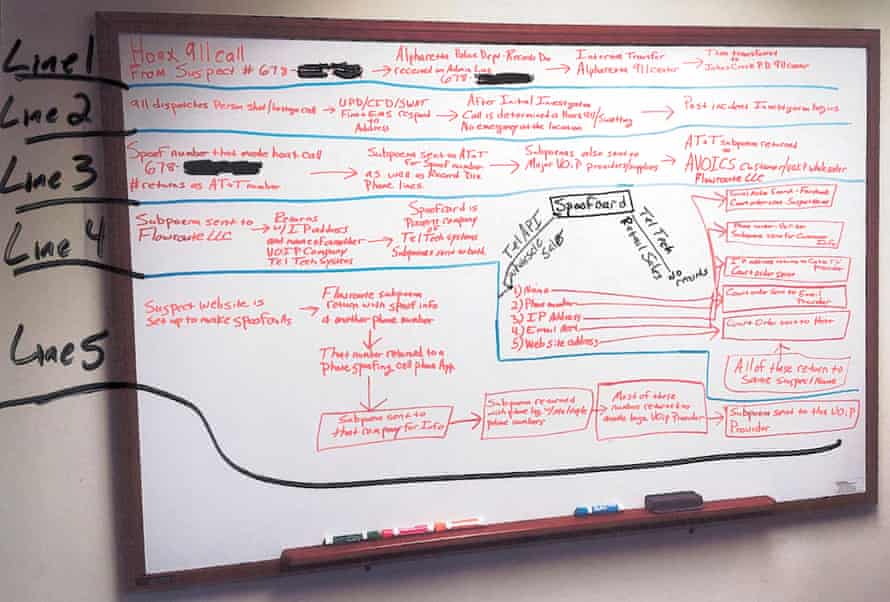 Line 1
Hoax 911 call
From Suspect # 678-
Alpharetta Police Dept - Records Div.
received on Admin Line
678-
Internal Transfer
Alpharetta 911 center
Then transferred
to
Johns Creek P.D. 911 center
Line 2
911 dispatches Person shot/hostage call
UPD/CFD/SWAT
Fire & EMS respond
to
Address
After Initial Investigation
Call is determined a Hoax 911/Swatting
No emergency at the location
Post incident Investigation begins
Line 3
Spoof number that made hoax call
678-
# returns as AT&T number
Subpoena sent on AT&T
for Spoof number
as well as Record Div.
Phone lines.
Subpoenas also sent to
Major VO.I.P providers/suppliers
AT&T subpoena returned
AVOICS customer/
Flowroute LLC
Line 4
Subpoena sent to
Flowroute LLC
Returns
w/ IP address
and name of another
VOIP Company
Tel Tech Systems
Spoofcard is
Parent company
of
Tel Tech Systems
Subpoenas sent to both
Spoofcard
Tel API
wholesale
Sales
Tel Tech
Retail Sales
no results
1) Name
2) Phone number
3) IP Address
4) Email Addr
5) Website address
Social Media Search - Facebook
Court order sent Suspect Name
Phone number
Subpoena sent for Customer
Info
IP address returns to Cable TV
Provider
Court order sent
Court order sent to Email
Provider
Court Order sent to Host
All of these return to
Same Suspect Name
Line 5
Suspect Website is
set up to make spoof calls
Flowroute subpoena
return with spoof info
& another phone number
That number returned to a
phone spoofing cell phone App
Subpoena sent to
that company for Info
Subpoena returned
with phone log w/multiple
phone numbers
Most of these
number returned to
another large VOip Provider
Subpoena sent to the VO.I.P
Provider